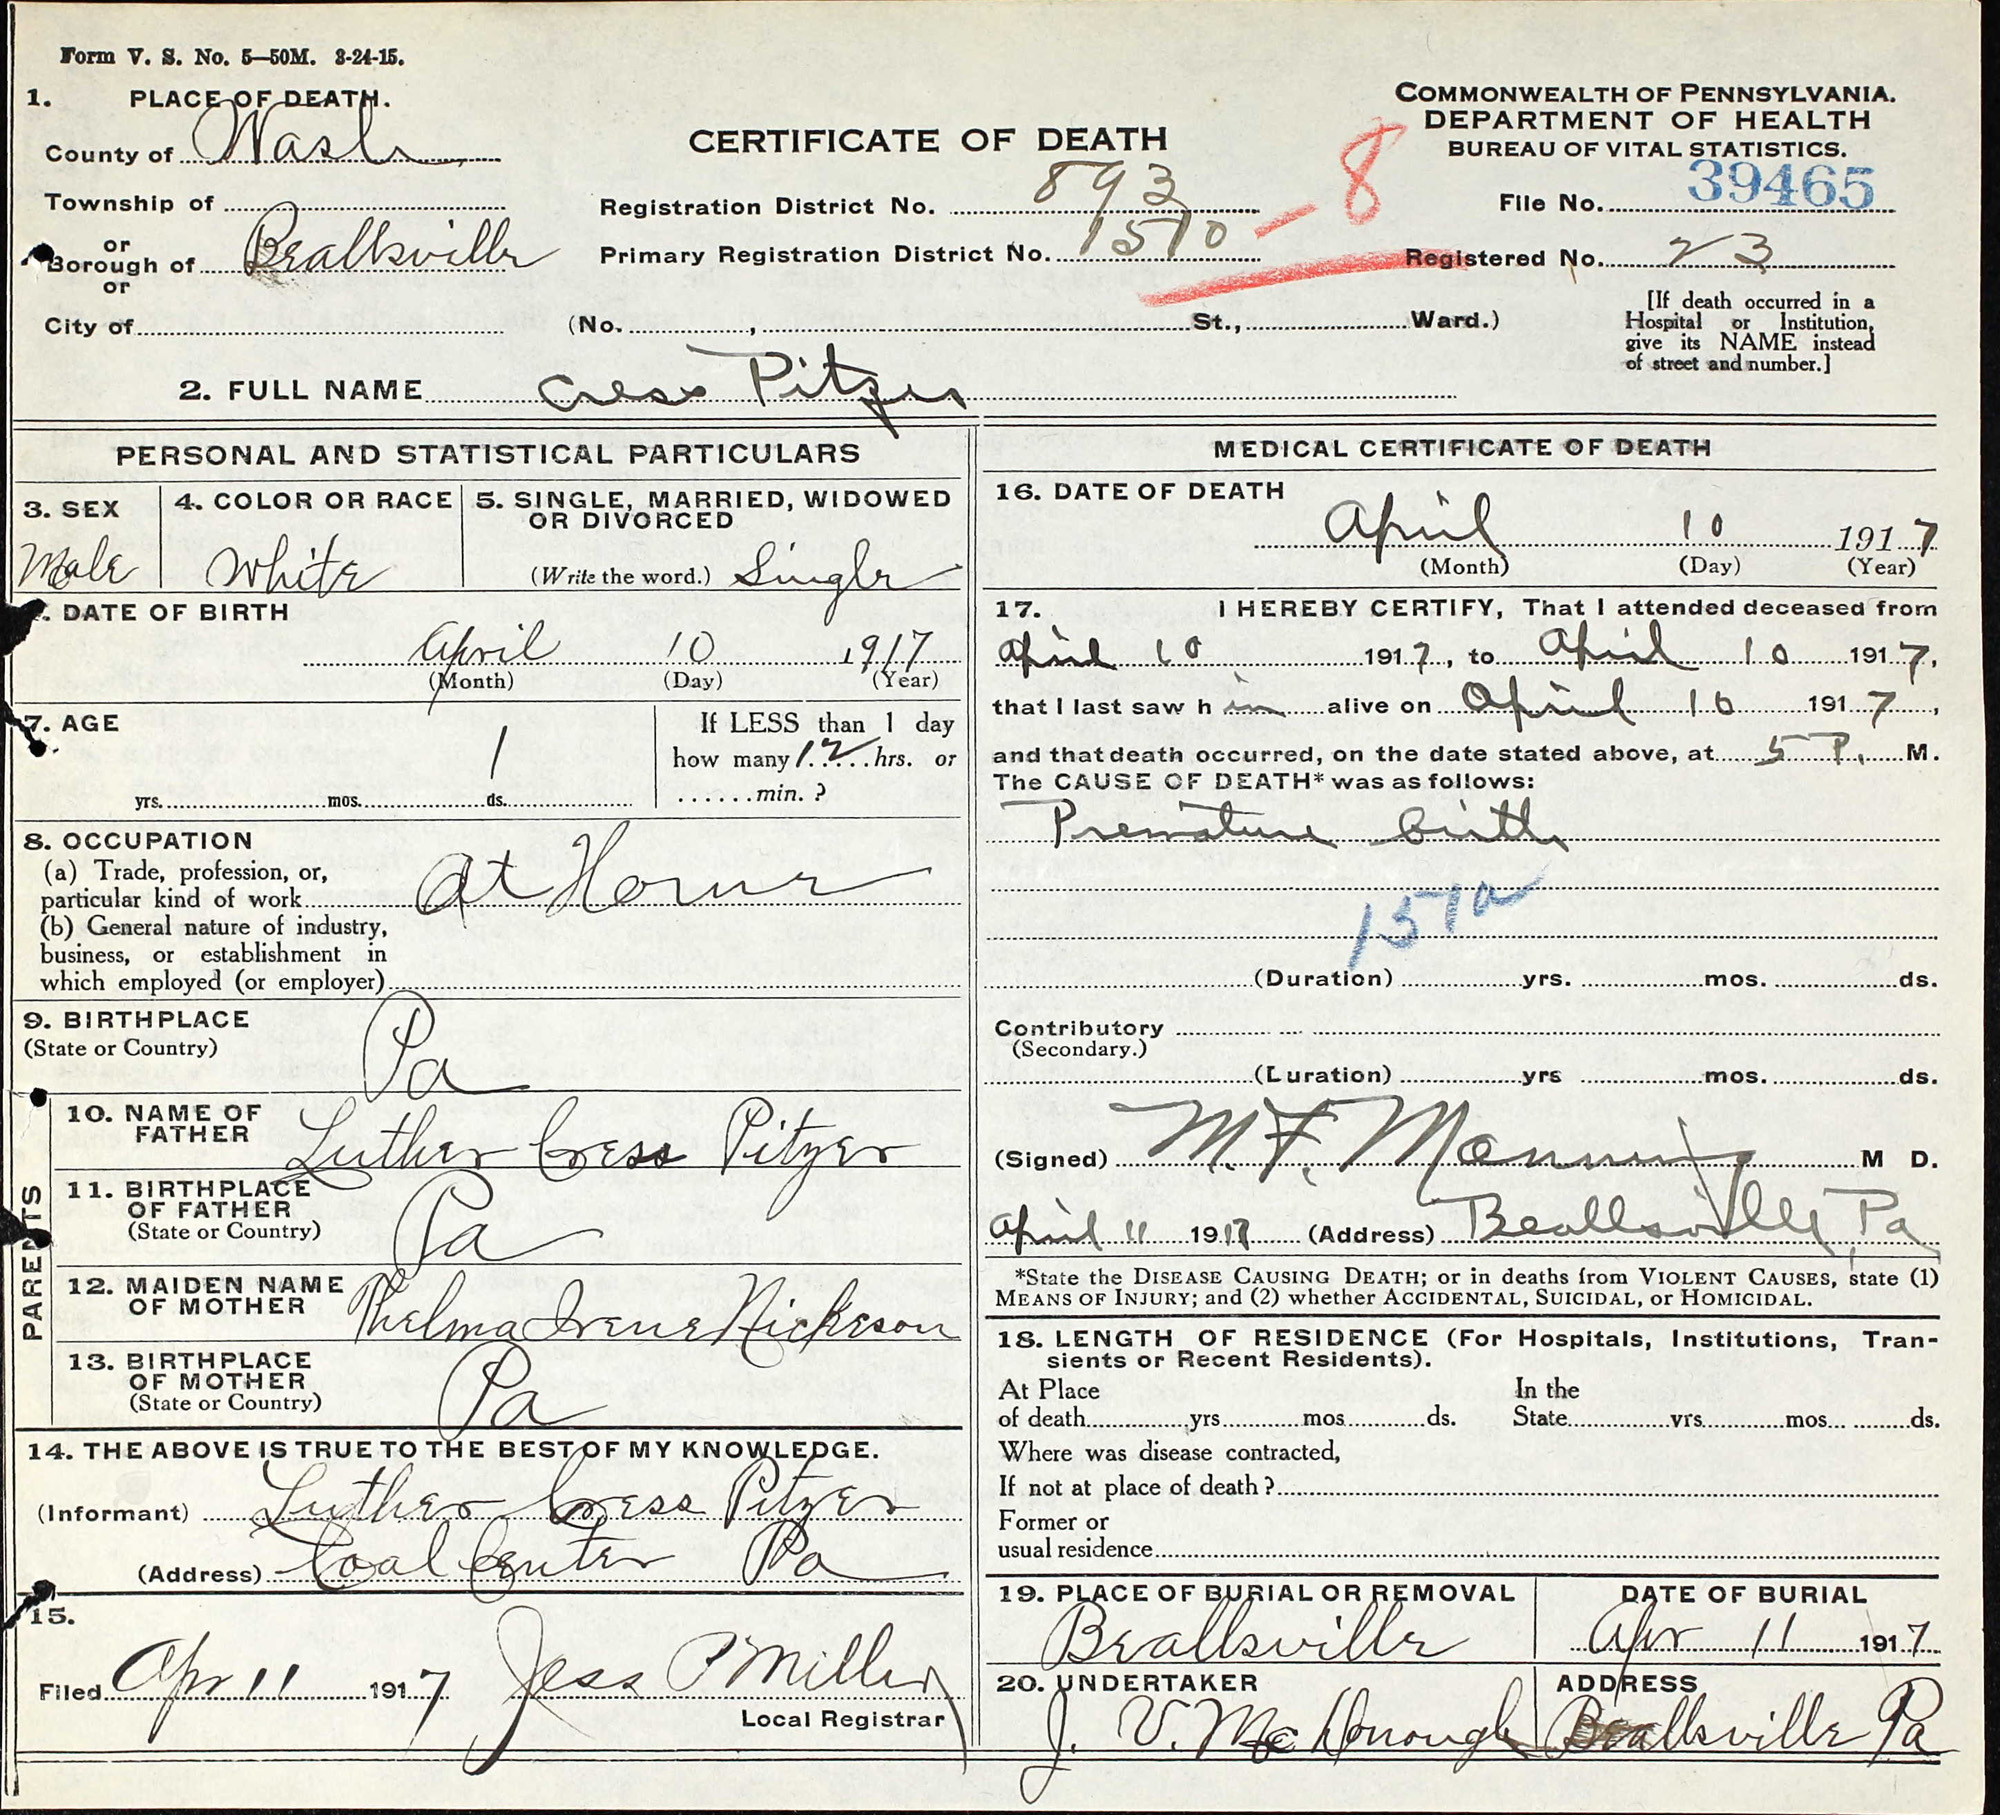 Form V. S. No. 5—50M. 3-24-15.
1. PLACE OF DEATH.
County of Wash
Township of
or
Borough of Beallsville
or
City of
CERTIFICATE OF DEATH
Registration District No. 893
Primary Registration District No. 1570 — 8
(No. , St., Ward.)
COMMONWEALTH OF PENNSYLVANIA.
DEPARTMENT OF HEALTH
BUREAU OF VITAL STATISTICS.
File No. 39465
Registered No. 23
[If death occurred in a
Hospital or Institution,
give its NAME instead
of street and number.]
2. FULL NAME Cress Pitzer
PERSONAL AND STATISTICAL PARTICULARS
3. SEX
Male
4. COLOR OR RACE
White
5. SINGLE, MARRIED, WIDOWED
OR DIVORCED
(Write the word.) Single
DATE OF BIRTH
April 10 1917
(Month) (Day) (Year)
7. AGE
1
yrs. mos. ds.
If LESS than 1 day
how many 12 hrs. or
min. ?
8. OCCUPATION
(a) Trade, profession, or,
particular kind of work At Home
(b) General nature of industry,
business, or establishment in
which employed (or employer)
9. BIRTHPLACE
(State or Country)
Pa
PARENTS
10. NAME OF
FATHER
Luther Cress Pitzer
11. BIRTHPLACE
OF FATHER
(State or Country)
Pa
12. MAIDEN NAME
OF MOTHER
Thelma Irene Nickeson
13. BIRTHPLACE
OF MOTHER
(State or Country)
Pa
14. THE ABOVE IS TRUE TO THE BEST OF MY KNOWLEDGE.
(Informant) Luther Cress Pitzer
(Address) Coal Center Pa
15.
Filed Apr 11 1917 Jess P Miller
Local Registrar
MEDICAL CERTIFICATE OF DEATH
16. DATE OF DEATH
April 10 1917
(Month) (Day) (Year)
17. I HEREBY CERTIFY, That I attended deceased from
April 10 1917, to April 10 1917,
that I last saw h im alive on April 10 1917,
and that death occurred, on the date stated above, at 5 P. M.
The CAUSE OF DEATH* was as follows:
Premature birth
151a
(Duration) yrs. mos. ds.
Contributory
(Secondary.)
(Duration) yrs mos. ds.
(Signed) M. F. Manning M D.
April 11 1917 (Address) Beallsville, Pa
*State the DISEASE CAUSING DEATH; or in deaths from VIOLENT CAUSES, state (1)
MEANS OF INJURY; and (2) whether ACCIDENTAL, SUICIDAL, or HOMICIDAL.
18. LENGTH OF RESIDENCE (For Hospitals, Institutions, Tran-
sients or Recent Residents).
At Place
of death yrs mos ds.
In the
State yrs mos ds.
Where was disease contracted,
If not at place of death ?
Former or
usual residence
19. PLACE OF BURIAL OR REMOVAL
Beallsville
DATE OF BURIAL
Apr 11 1917
20. UNDERTAKER
J. V. McDonough
ADDRESS
Beallsville Pa